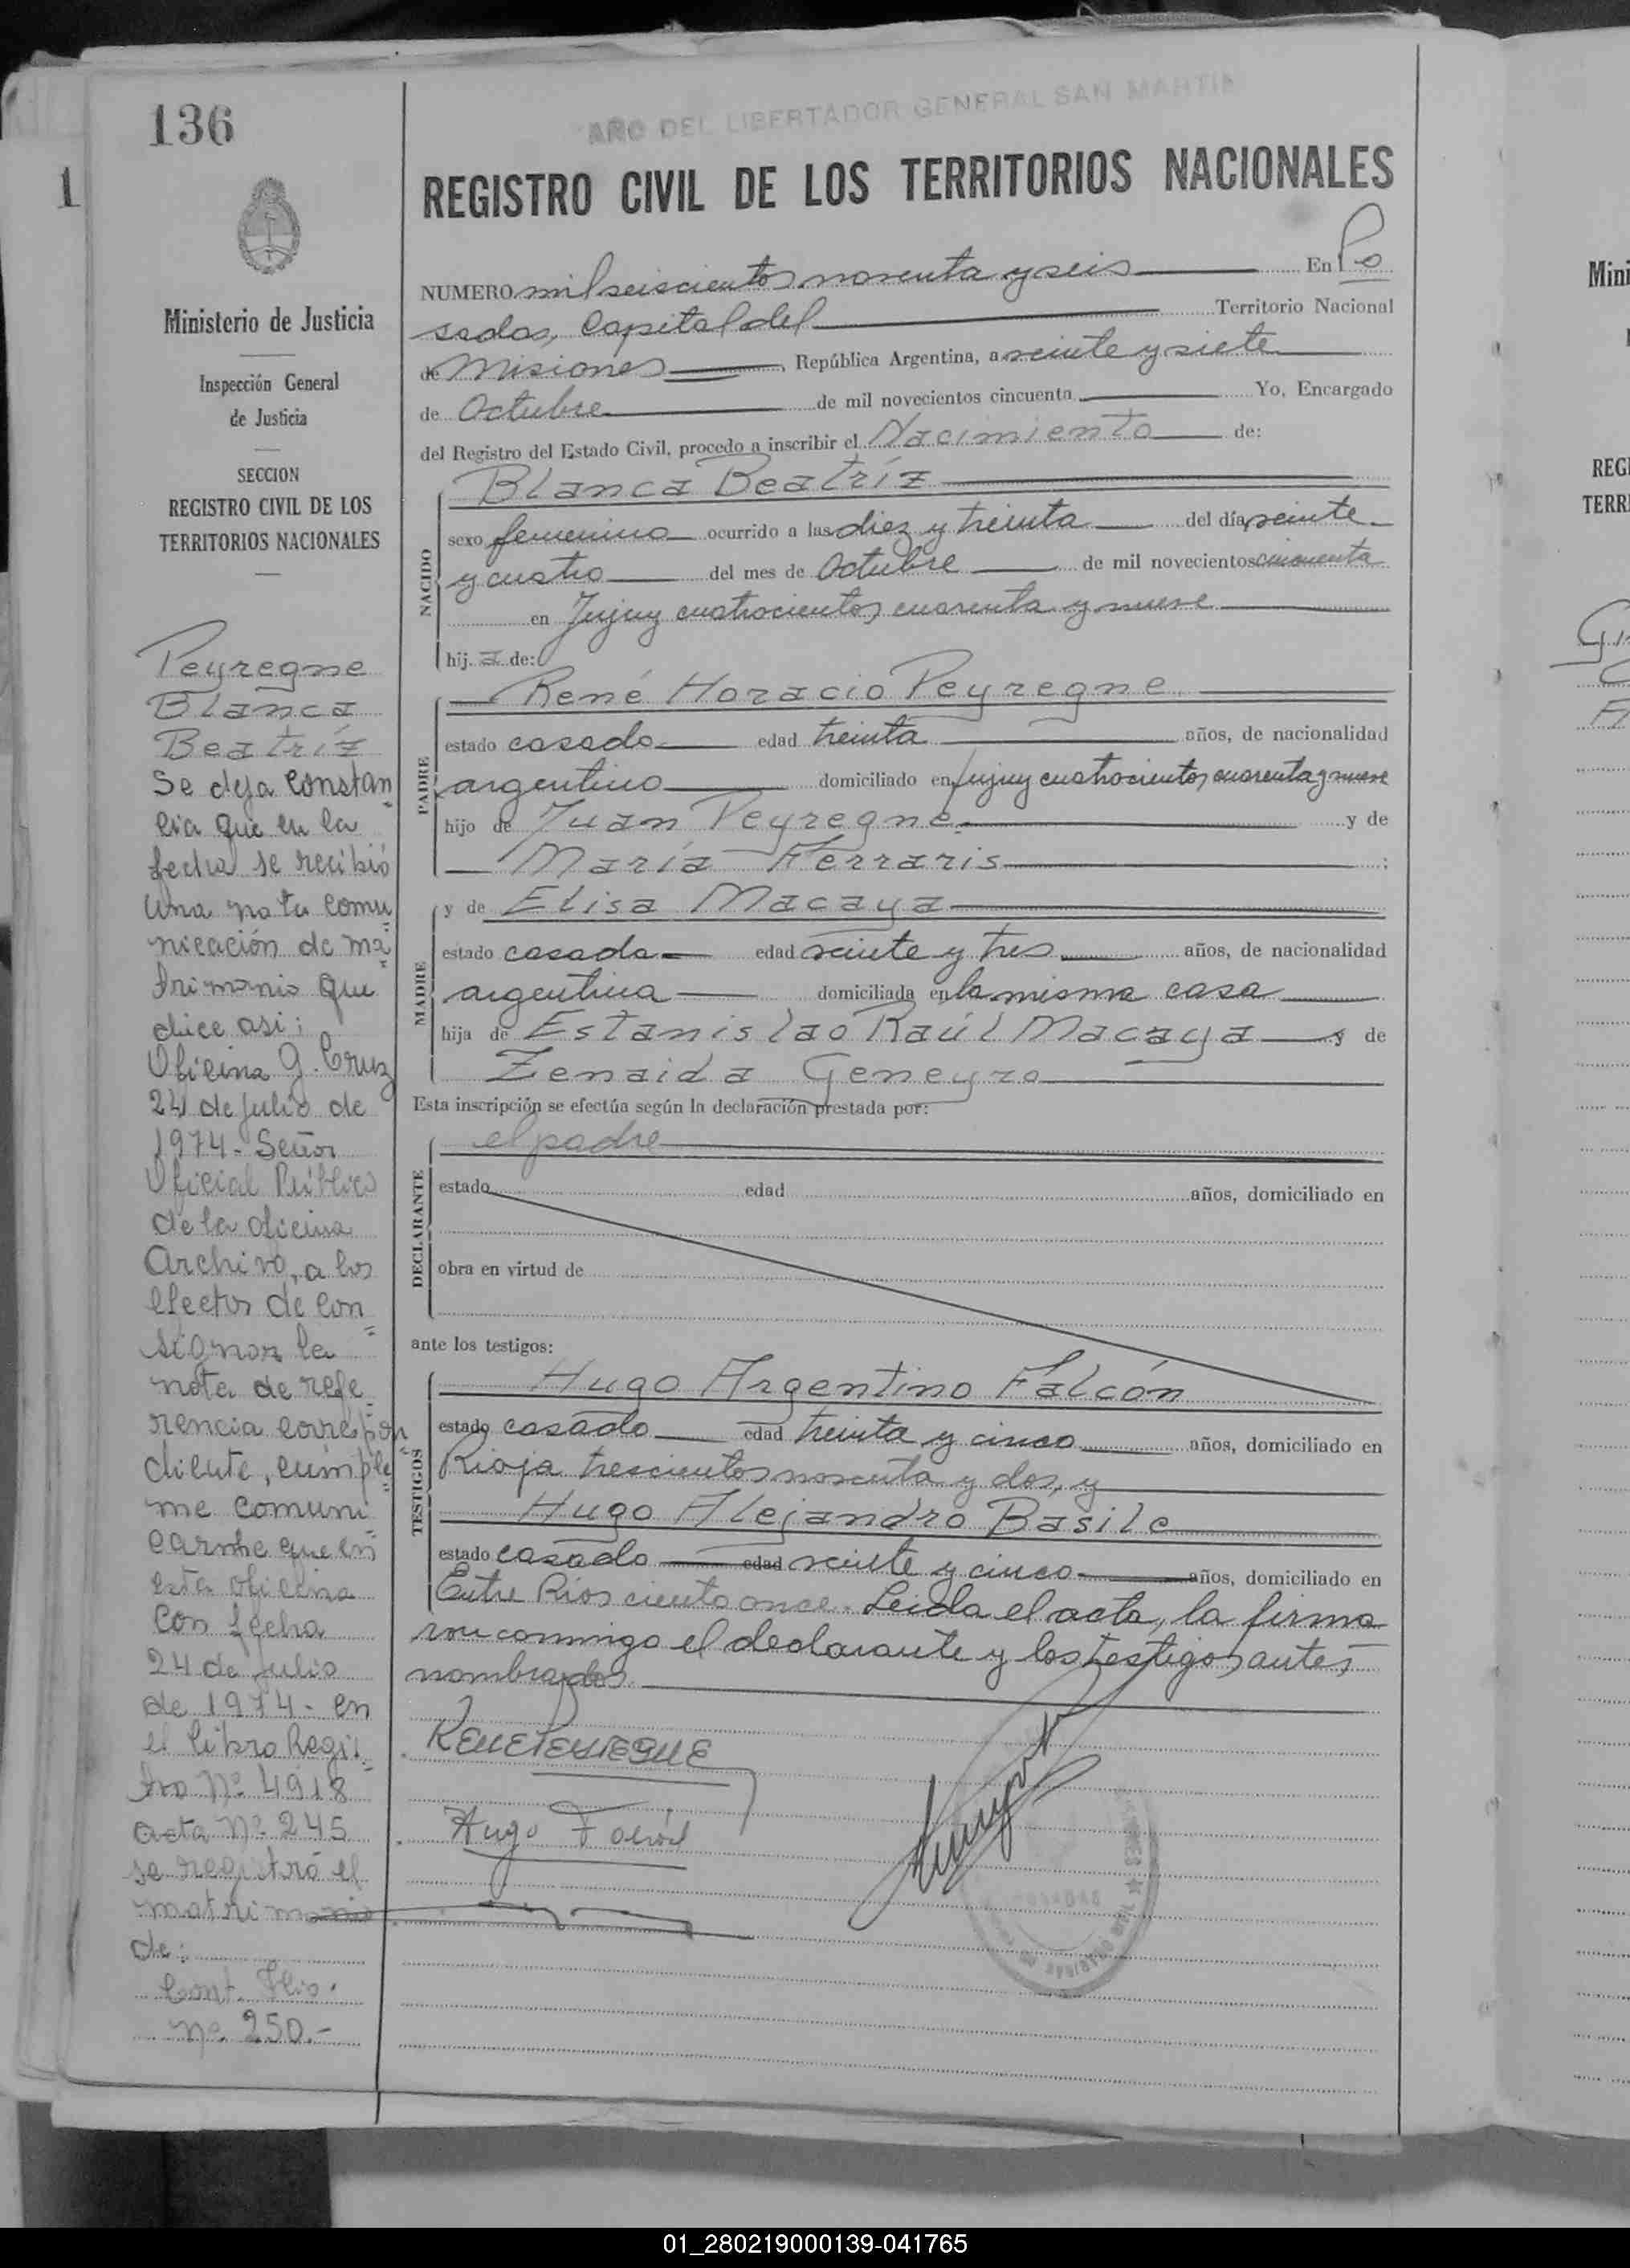 136
1
"AÑO DEL LIBERTADOR GENERAL SAN MARTIN
REGISTRO CIVIL DE LOS TERRITORIOS NACIONALES
Ministerio de Justicia
Inspección General
de Justicia
SECCION
REGISTRO CIVIL DE LOS
TERRITORIOS NACIONALES
Peyregne
Blanca
Beatríz
Se deja Constan
cia que en la
fecha se recibió
una nota comu
nicación de ma
trimonio que
dice asi:
Oficina G. Cruz
24 de Julio de
1974- Señor
Oficial Público
de la oficina
Archivo, a los
efectos de con
signar la
nota de refe
rencia correspon
diente, cumple
me comuni
carme que en
esta oficina
con fecha
24 de Julio
de 1974- en
el libro Regis
tro Nº 4918
acta Nº 245
se registró el
matrimonio
de:
Cont. Flio.
Nº 250.-
NUMERO mil seiscientos noventa y seis En Po
sadas, Capital del Territorio Nacional
de Misiones, República Argentina, a veinte y siete
de Octubre de mil novecientos cincuenta Yo, Encargado
del Registro del Estado Civil, procedo a inscribir el Nacimiento de:
NACIDO
Blanca Beatríz
sexo femenino ocurrido a las diez y treinta del día veinte
y cuatro del mes de Octubre de mil novecientos cincuenta
en Jujuy cuatrocientos cuarenta y nueve
hij a de:
PADRE
René Horacio Peyregne
estado casado edad treinta años, de nacionalidad
argentino domiciliado en Jujuy cuatrocientos cuarenta y nueve
hijo de Juan Peyregne y de
María Ferraris;
MADRE
y de Elisa Macaya
estado casada edad veinte y tres años, de nacionalidad
argentina domiciliada en la misma casa
hija de Estanislao Raúl Macaya y de
Zenaida Geneyro
Esta inscripción se efectúa según la declaración prestada por:
DECLARANTE
el padre
estado edad años, domiciliado en
obra en virtud de
ante los testigos:
TESTIGOS
Hugo Argentino Falcón
estado casado edad treinta y cinco años, domiciliado en
Rioja trescientos noventa y dos, y
Hugo Alejandro Basile
estado casado edad veinte y cinco años, domiciliado en
Entre Ríos ciento once. Leida el acta, la firma
ron conmigo el declarante y los testigos antes
nombrados.
Rene Peyregne
Hugo Falcón
Mini
REGI
TERRI
01_280219000139-041765